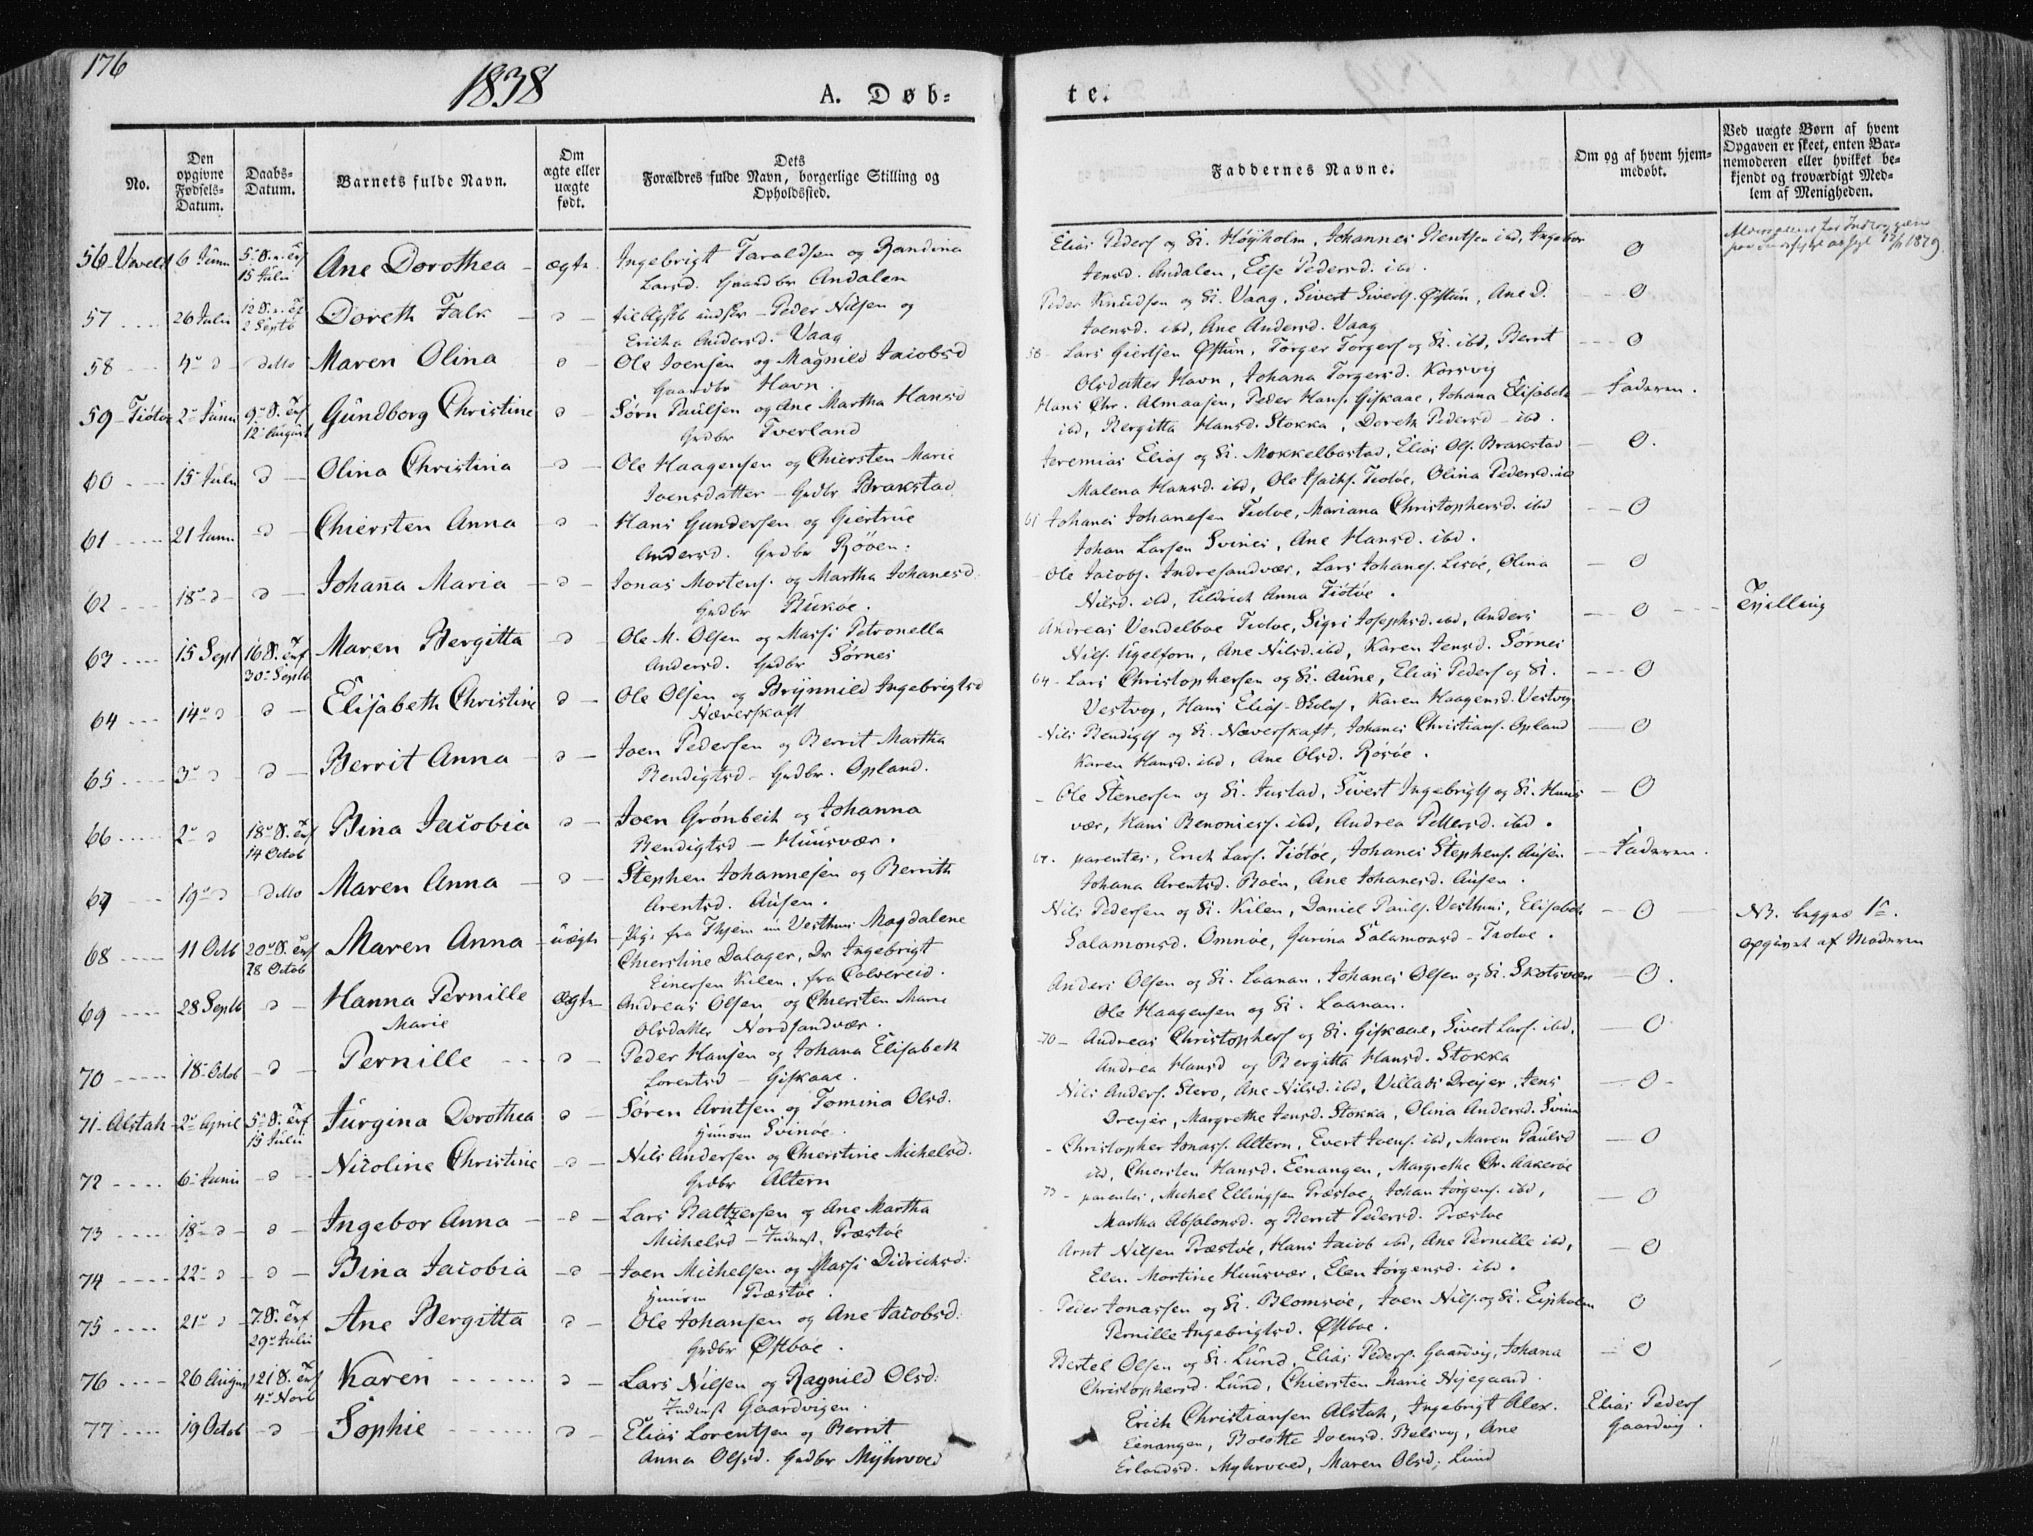 176
1838
A. Døb-
te.
No.
Den opgivne Fødsels-Datum.
Daabs-Datum.
Barnets fulde Navn.
Om ægte eller uægte født.
Dets Forældres fulde Navn, borgerlige Stilling og Opholdssted.
Faddernes Navne.
Om og af hvem hjemmedøbt.
Ved uægte Børn af hvem Opgaven er skeet, enten Barnemoderen eller hvilket bekjendt og troværdigt Medlem af Menigheden.
56 6 Junii 15 Julii Ane Dorothea ægte Ingebrigt Taraldsen og Randina
Larsd. Gaardbr Andalen
Elias Peders og K. Høyholm, Johannes ibd, Ingebor
Jensd. Andalen, Else Pedersd. ibd. 0
57 26 Julii 2 Septb Doreth Falk d Peder Nilsen og
Ericha Andersd. Vaag
Peder Knudsen og K. Vaag, Sivert Siverts. Østun, Ane D.
Joensd. ibd, Ane Andersd. Vaag 0
58 4 d ditto Maren Olina d Ole Joensen og Magnild Jacobsd
Gaardbr Havn.
58 - Lars Giertsen Østun, Torger Torgers og K. ibd, Berrit
Olsdatter Havn, Johana Torgersd. Korsvig 0
59 - Tiøtøe 2 Junii 12 August Gundborg Christine d Sørn Paulsen og Ane Martha Hansd
Grdbr Tverland
Hans Chr. Almaasen, Peder Hans. Giskaae, Johana Elisabeth
ibd, Bergitta Hansd. Stokka, Doreth Pedersd - ibd. Faderen.
60 15 Julii d Olina Christina d Ole Haagensen og Chiersten Marie
Joensdatter - Grdbr Brakstad
Jeremias Elias og K. Mokkelbostad, Elias Ols. Brakstad
Malena Hansd. ibd, Ole Tiøtøe, Olina Pedersd. ibd 0.
61 21 Junii d Chiersten Anna d Hans Gundersen og Giertrue
Andersd. Grdbr Røøen:
61 Johanes Johanesen Tiotoe, Mariana Christophersd. ibd
Johan Larsen Svines, Ane Hansd. ibd. 0
62 18 d d Johana Maria d Jonas Mortens. og Martha Johanesd.
Grdbr Rukøe.
Ole Jacobs. Andresandvær, Lars Johanes. Lisøe, Olina
Nilsd. ibd, Anna Tiøtøe. 0
63 15 Sept 16 S. Trf 30 Septb Maren Bergitta d Ole M. Olsen og Massi Petronella
Andersd. Grdbr Sørnes
Andreas Vendelboe Tiotoe, Sigri Josephsd. ibd, Anders
Nils. Ugelforn, Ane Nilsd. ibd, Karen Jensd. Sørnes 0
Tvilling
64 14 d d Elisabeth Christine d Ole Olsen og Brynnild Ingebrigtsd
Næverskaft
64 - Lars Christophersen og K. Aune, Elias Peders og K.
Vestvog, Hans Elias. Karen Haagensd. Vestvog 0
65 3 d d Berrit Anna d Joen Pedersen og Berrit Martha
Bendigtsd - Grdbr. Opland.
Nils Bendigts og K. Næverskaft, Johanes Christians. Opland
Karen Hansd. ibd, Ane Olsd. Rosøe. 0
66 2 d 18 S. Trf 14 Octob Bina Jacobia d Joen Grønbech og Johanna
Bendigtsd - Huusvær.
Ole Stenersen og K. Justad, Sivert Ingebrigts og K. Huus
vær, Hans Benonies. ibd, Andrea Pettersd. ibd. 0
67 19 d ditto Maren Anna d Stephen Johannesen og Berrith
Arentsd. Ausen.
67. parentes, Erich Lars. Tiøtøe, Johanes Stephens. Ausen
Johana Arentsd. Roen, Ane Johanesd. Ausen. Faderen.
68 11 Octb 20 S. Trf 28 Octob Maren Anna uægte Pige fra Vesthuus Magdalene
Chierstine Dalager, Dr Ingebrigt
Einersen Kilen, fra Colvereid.
Nils Pedersen og K. Kilen, Daniel Pauls. Vesthuus, Elisabeth
Salamonsd. Omnøe, Gurina Salamonsd - Tiotoe. 0
NB. begges 1ste.
opgivet af Moderen
69 28 Septb d Hanna Pernille
Marie ægte Andreas Olsen og Chiersten Marie
Olsdatter Nordsandvær.
Anders Olsen og K. Laanan, Johanes Olsen og K. Skotsvær
Ole Haagensen og K. Laanan. 0.
70 18 Octob d Pernille d Peder Hansen og Johana Elisabeth
Lorentsd - Giskaae.
70 - Andreas Christophers og K. Giskaae, Sivert Lars. ibd,
Andrea Hansd og Bergitta Hansd. Stokka 0
71 - Alstah 2 April 5 S. Trf 15 Julii Jurgina Dorothea d Søren Arntsen og Tomina Olsd.
Huusm Svinøe.
Nils Anders. Stero, Ane Nilsd. ibd, Villads Dreyer, Jens
Dreyer, Margrethe Jensd. Stokka, Olina Andersd. Svinø 0
72 6 Junii d Nicoline Christine d Nils Andersen og Chierstine Michelsd.
Grdbr Altern
Christopher Jonass. Altern, Evert Joens. ibd, Maren Paulsd
ibd, Chiersten Hansd. Eenangen, Margrethe Chr. Aakerøe 0
73 18 d d Ingebor Anna d Lars Baltzersen og Ane Martha
Michelsd - Inderst. Præstøe
73 - parentes, Michel Ellingsen Præstøe, Johan Jørgens. ibd,
Martha Absalonsd. og Berrit Pedersd. Præstøe 0
74 22 d d Bina Jacobia d Joen Michelsen og Massi Didrichsd:
Huusm Præstøe.
Arnt Nilsen Præstøe, Hans Jacob ibd, Ane Pernille ibd,
Elen Martine Huusvær, Elen Jørgensd. ibd. 0
75 21 d 7 S. Trf 29 Julii Ane Bergitta d Ole Johansen og Ane Jacobsd:
Grdbr Østbøe.
Peder Jonassen og K. Blomsøe, Joen Nils. og K. Eipholm
Pernille Ingebrigtsd. Østbøe. 0
76 26 August 21 S. Trf 4 Novb Karen d Lars Nilsen og Ragnild Olsd:
Inderst Gaardvigen.
Bertel Olsen og K. Lund, Elias Peders. Gaardvig, Johana
Christophersd. Lund, Chiersten Marie Nyegaard. 0
77 19 Octob d Sophie d Elias Lorentsen og Berrit
Anna Olsd. Grdbr Myhrvoed
Erich Christiansen Alstah, Ingebrigt Alex.
Eenangen, Bolotte Joensd. Belsvog, Ane
Erlandsd. Myhrvoed, Maren Olsd. Lund
Elias Peders
Gaardvig.